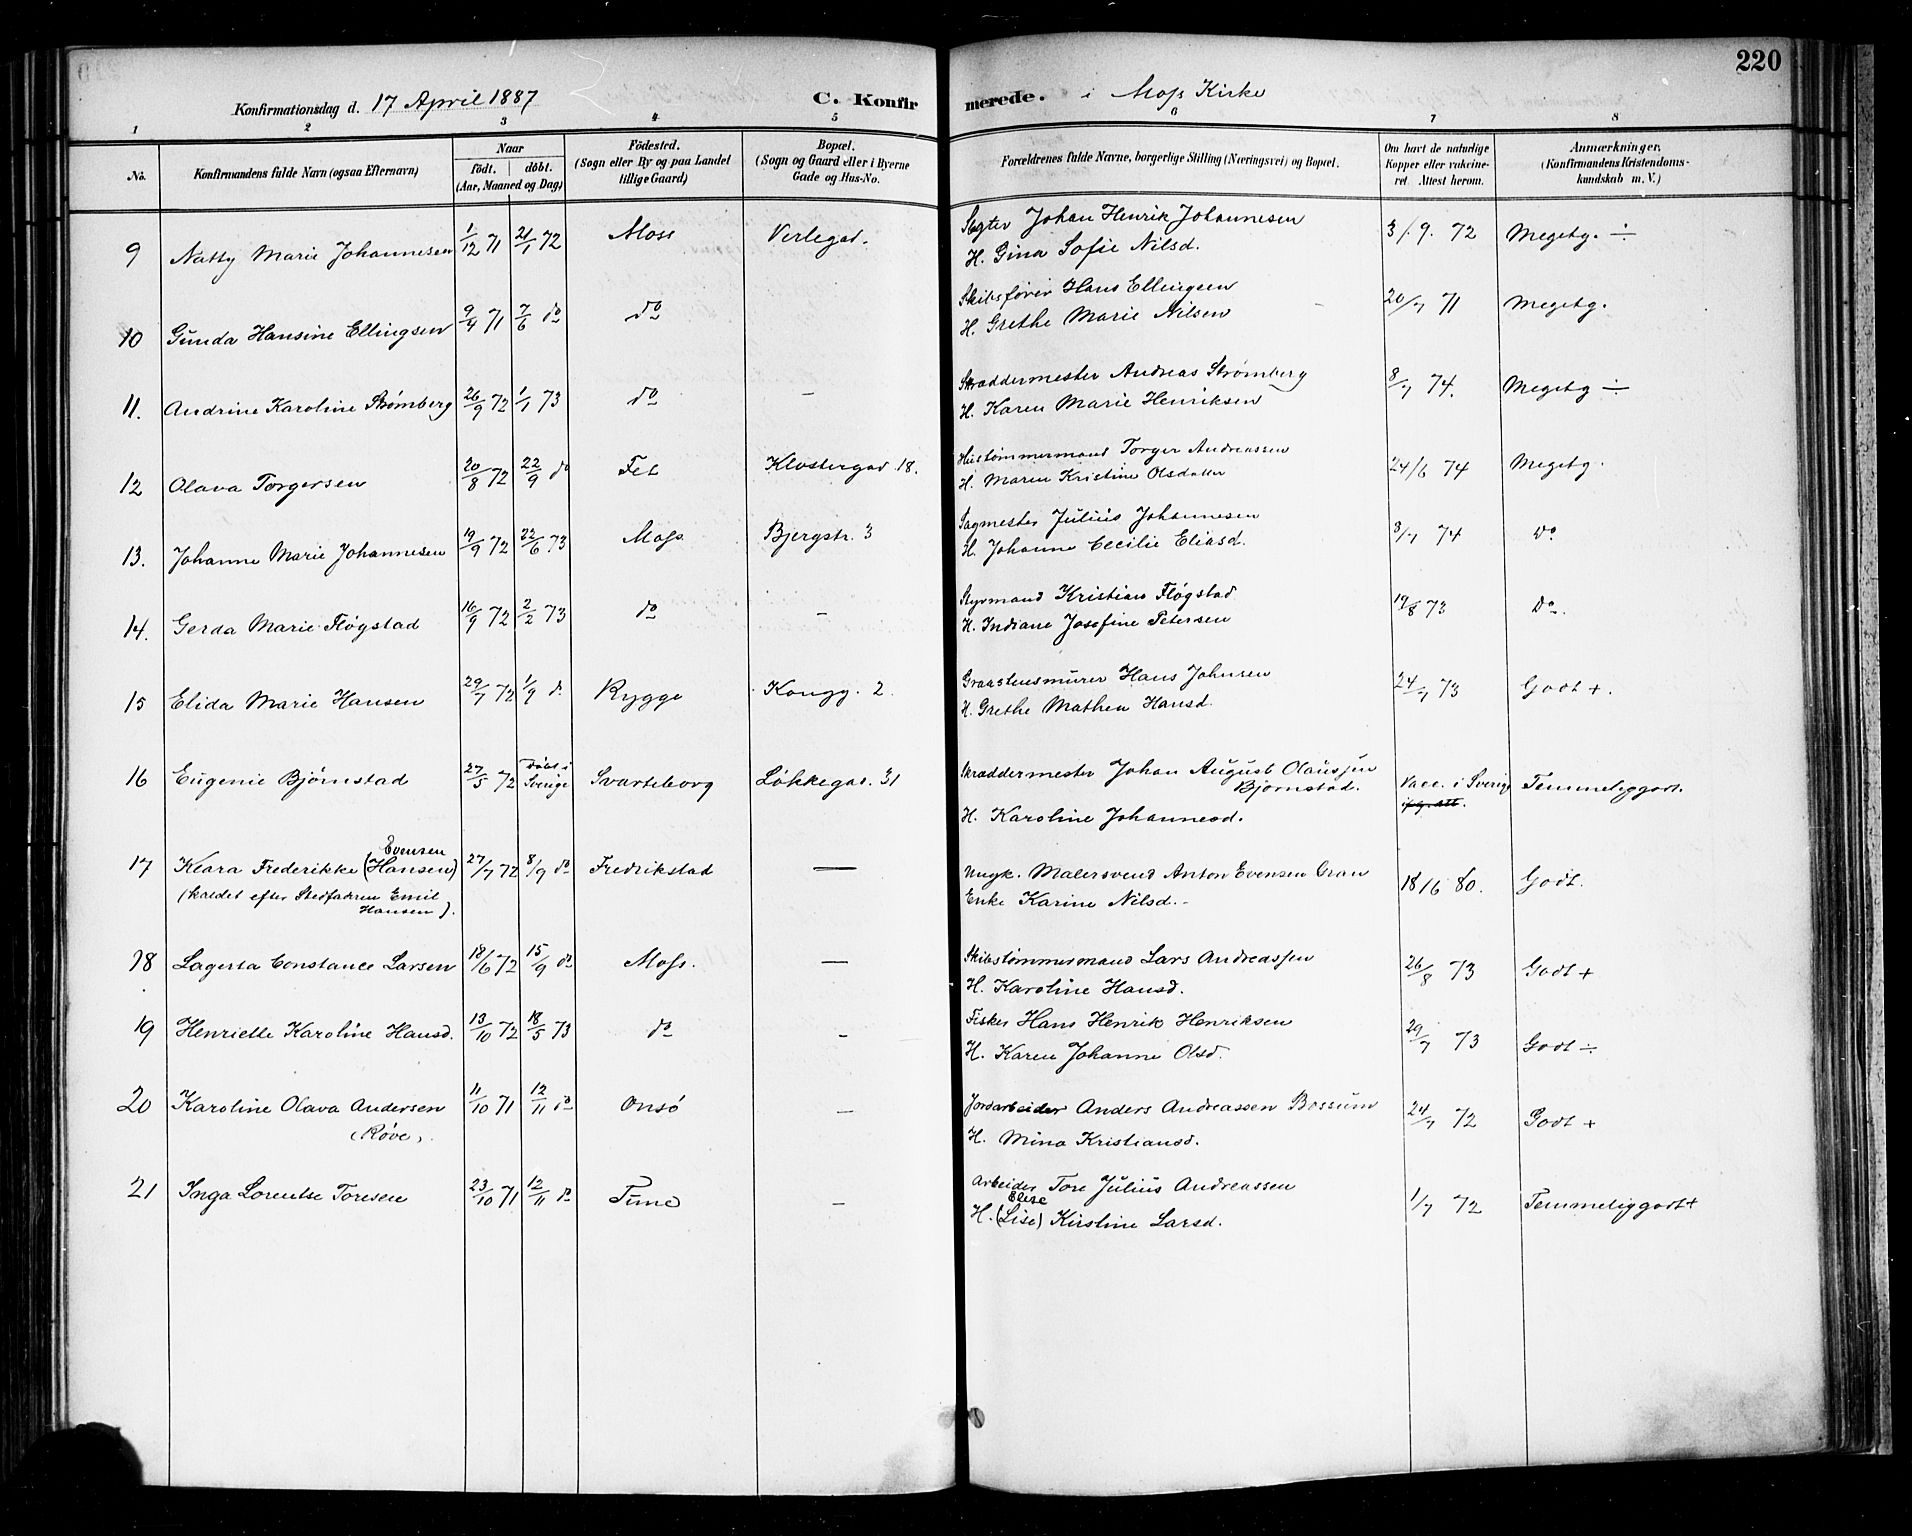 220
Konfirmationsdag d. 17 April 1887 C. Konfirmerede. i Moss Kirke
1 2 3 4 5 6 7 8
No. Konfirmandens fulde Navn (ogsaa Efternavn) Naar født. døbt. (Aar, Maaned og Dag) Fødested. (Sogn eller By og paa Landet tillige Gaard) Bopæl. (Sogn og Gaard eller i Byerne Gade og Hus-No. Forældrenes fulde Navne, borgerlige Stilling (Næringsvei) og Bopæl. Om havt de naturlige Kopper eller vakcineret. Attest herom. Anmærkninger, (Konfirmandens Kristendomskundskab m. V.)
9 Natty Marie Johannesen 1/12 71 21/1 72 Moss Verlegad. Johan Henrik Johannesen 3/9. 72 Megetg. ÷
H. Gina Sofie Nilsd.
10 Gunda Hansine Ellingsen 9/4 71 7/6 do do Skibsfører Hans Ellingsen 20/7 71 Megetg.
H. Grethe Marie Nilsen
11. Andrine Karoline Strømberg 26/9 72 1/1 73 do — Skræddermester Andreas Strømberg 8/7 74. Megetg ÷
H. Karen Marie Henriksen
12 Olava Torgersen 20/8 72 22/9 do Fet Klostergad 18. Hustømmermand Torger Andreassen 24/6 74 Megetg.
H. Maren Kristine Olsdatter
13. Johanne Marie Johannesen 19/9 72 22/6 73 Moss Bjergstr. 3 Sagmester Julius Johannesen 3/7 74 Do
H. Johanne Cecilie Eliasd.
14. Gerda Marie Fløgstad 16/9 72 2/2 73 do — Styrmand Kristian Fløgstad 19/8 73 Do.
H. Indiane Josefine Petersen
15 Elida Marie Hansen 29/7 72 1/9 do Rygge Kongg. 2. Graastensmurer Hans Johnsen 24/7 73 Godt +.
H. Grethe Mathea Hansd.
16 Eugenie Bjørnstad 27/5 72 Døbt i Sverige Svarteborg Løkkegad. 31 Skræddermester Johan August Olaussen Bjørnstad. Vacc. i Sverige Temmeliggodt.
H. Karoline Johannesd.
17 Klara Frederikke Evensen (Hansen) 27/7 72 8/9 do Fredrikstad — Ungk. Malersvend Anton Evensen Gran 18/6 80. Godt.
(kaldet efter Stedfadren Emil Hansen). Enke Karine Nilsd. -
18 Lagerta Constance Larsen 18/6 72 15/9 do Moss. — Skibstømmermand Lars Andreassen 26/8 73 Godt +
H. Karoline Hansd.
19 Henriette Karoline Hansd. 13/10 72 18/5 73 do — Fisker Hans Henrik Henriksen 29/7 73 Godt ÷
H. Karen Johanne Olsd.
20 Karoline Olava Andersen 11/10 71 12/11 do Onsø — Jordarbeider Anders Andreassen Bossum 24/7 72 Godt +
(Røve). H. Mina Kristiansd.
21 Inga Lorentse Toresen 23/10 71 12/11 do Tune — Arbeider Tore Julius Andreassen 1/7 72 Temmeliggodt +
H. Elise (Lise) Kirstine Larsd.